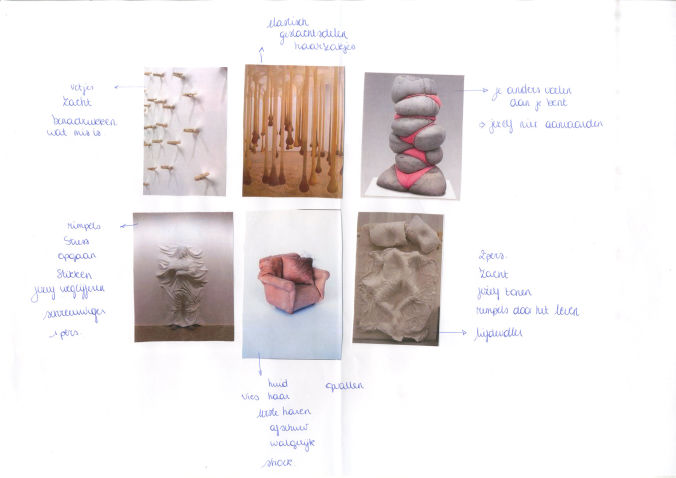 elastisch
geslachtsdelen
haarzakjes
vetjes
zacht
benadrukken
wat mis is.
je anders voelen
dan je bent
jezelf niet aanvaarden
rimpels
stress
opgaan
stikken
jezelf wegcijferen
schreeuwiger
1 pers.
2 pers.
zacht
jezelf tonen
rimpels door het leven
huid opvallen
vies haar
afschuw
walgelijk
shock.